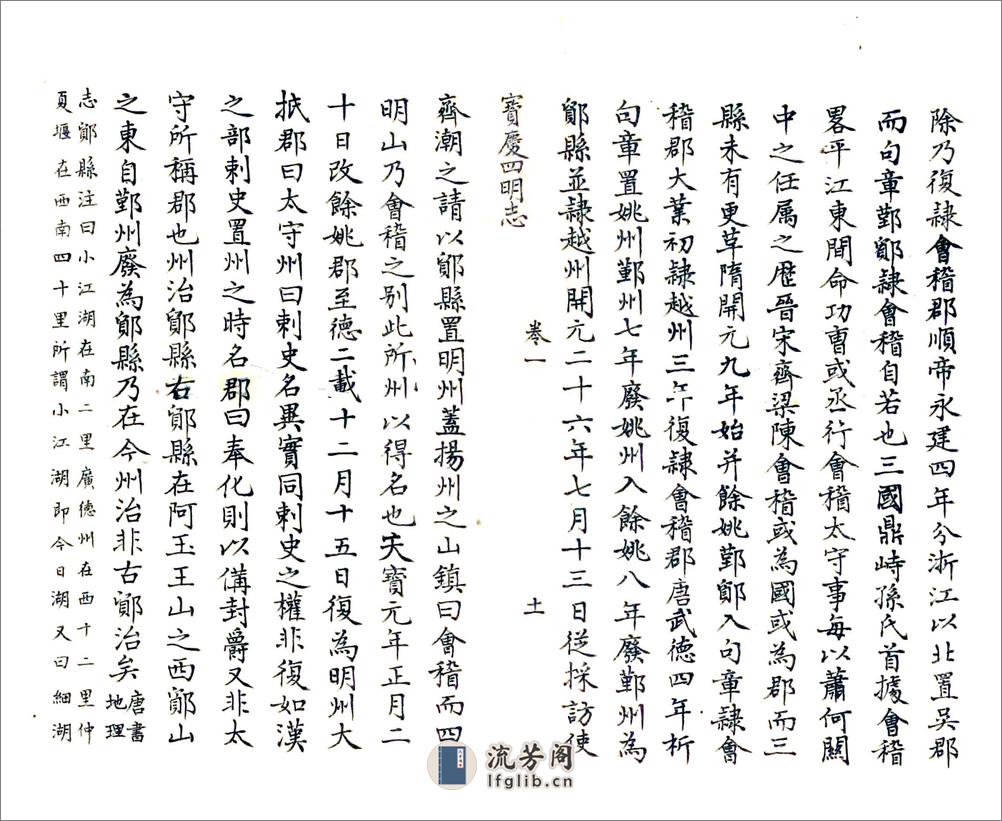 除乃復隷會稽郡順帝永建四年分浙江以北置吳郡
而句章鄞鄮隷會稽自若也三國鼎峙孫氏首據會稽
畧平江東間命功曹或丞行會稽太守事每以蕭何關
中之任属之歷晉宋齊梁陳會稽或為國或為郡而三
縣未有更革隋開元九年始并餘姚鄞鄮入句章隷會
稽郡大業初隷越州三年復隷會稽郡唐武德四年析
句章置姚州鄞州七年廢姚州入餘姚八年廢鄞州為
鄮縣並隷越州開元二十六年七月十三日從採訪使
寶慶四明志
卷一
十一
齊潮之請以鄮縣置明州蓋揚州之山鎮曰會稽而四
明山乃會稽之別此所州以得名也天寶元年正月二
十日改餘姚郡至德二載十二月十五日復為明州大
抵郡曰太守州曰刺史名異實同刺史之權非復如漢
之部刺史置州之時名郡曰奉化則以備封爵又非太
守所稱郡也州治鄮縣右鄮縣在阿玉王山之西鄮山
之東自鄞州廢為鄮縣乃在今州治非古鄮治矣唐書地理
志鄮縣注曰小江湖在南二里廣德州在西十二里仲
夏堰在西南四十里所謂小江湖即今日湖又曰細湖
流芳阁
lfglib.cn